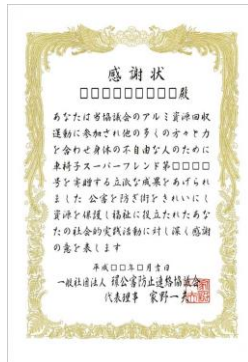 感謝状
□□□□□□□□□殿
あなたは当協議会のアルミ資源回収
運動に参加され他の多くの方々と力
を合わせ身体の不自由な人のために
車椅子スーパーフレンド第□□□□
号を寄贈する立派な成果をあげられ
ました 公害を防ぎ街をきれいにし
資源を保護し福祉に役立たれたあな
たの社会的実践活動に対し深く感謝
の意を表します
平成□□年□月吉日
一般社団法人 環公害防止連絡協議会
代表理事